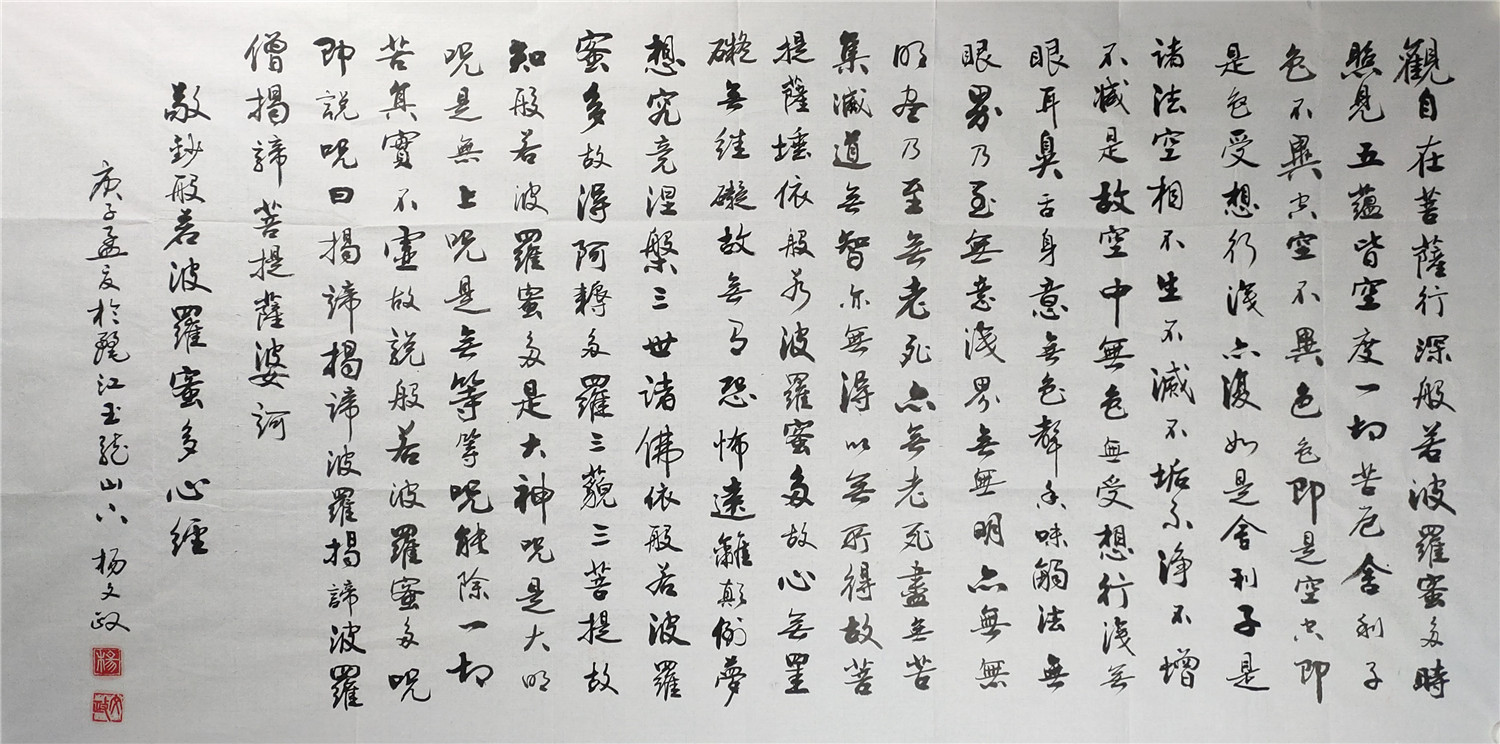 觀自在菩薩行深般若波羅蜜多時
照見五蘊皆空度一切苦厄舍利子
色不異空空不異色色即是空空即
是色受想行識亦復如是舍利子是
諸法空相不生不滅不垢不淨不增
不減是故空中無色無受想行識無
眼耳鼻舌身意無色聲香味觸法無
眼界乃至無意識界無無明亦無無
明盡乃至無老死亦無老死盡無苦
集滅道無智亦無得以無所得故菩
提薩埵依般若波羅蜜多故心無罣
礙無絓礙故無有恐怖遠離顛倒夢
想究竟涅槃三世諸佛依般若波羅
蜜多故得阿耨多羅三藐三菩提故
知般若波羅蜜多是大神呪是大明
呪是無上呪是無等等呪能除一切
苦真實不虛故說般若波羅蜜多呪
即說呪曰揭諦揭諦波羅揭諦波羅
僧揭諦菩提薩婆訶
敬鈔般若波羅蜜多心經
庚子孟夏於麗江玉龍山下楊文政
楊
文政